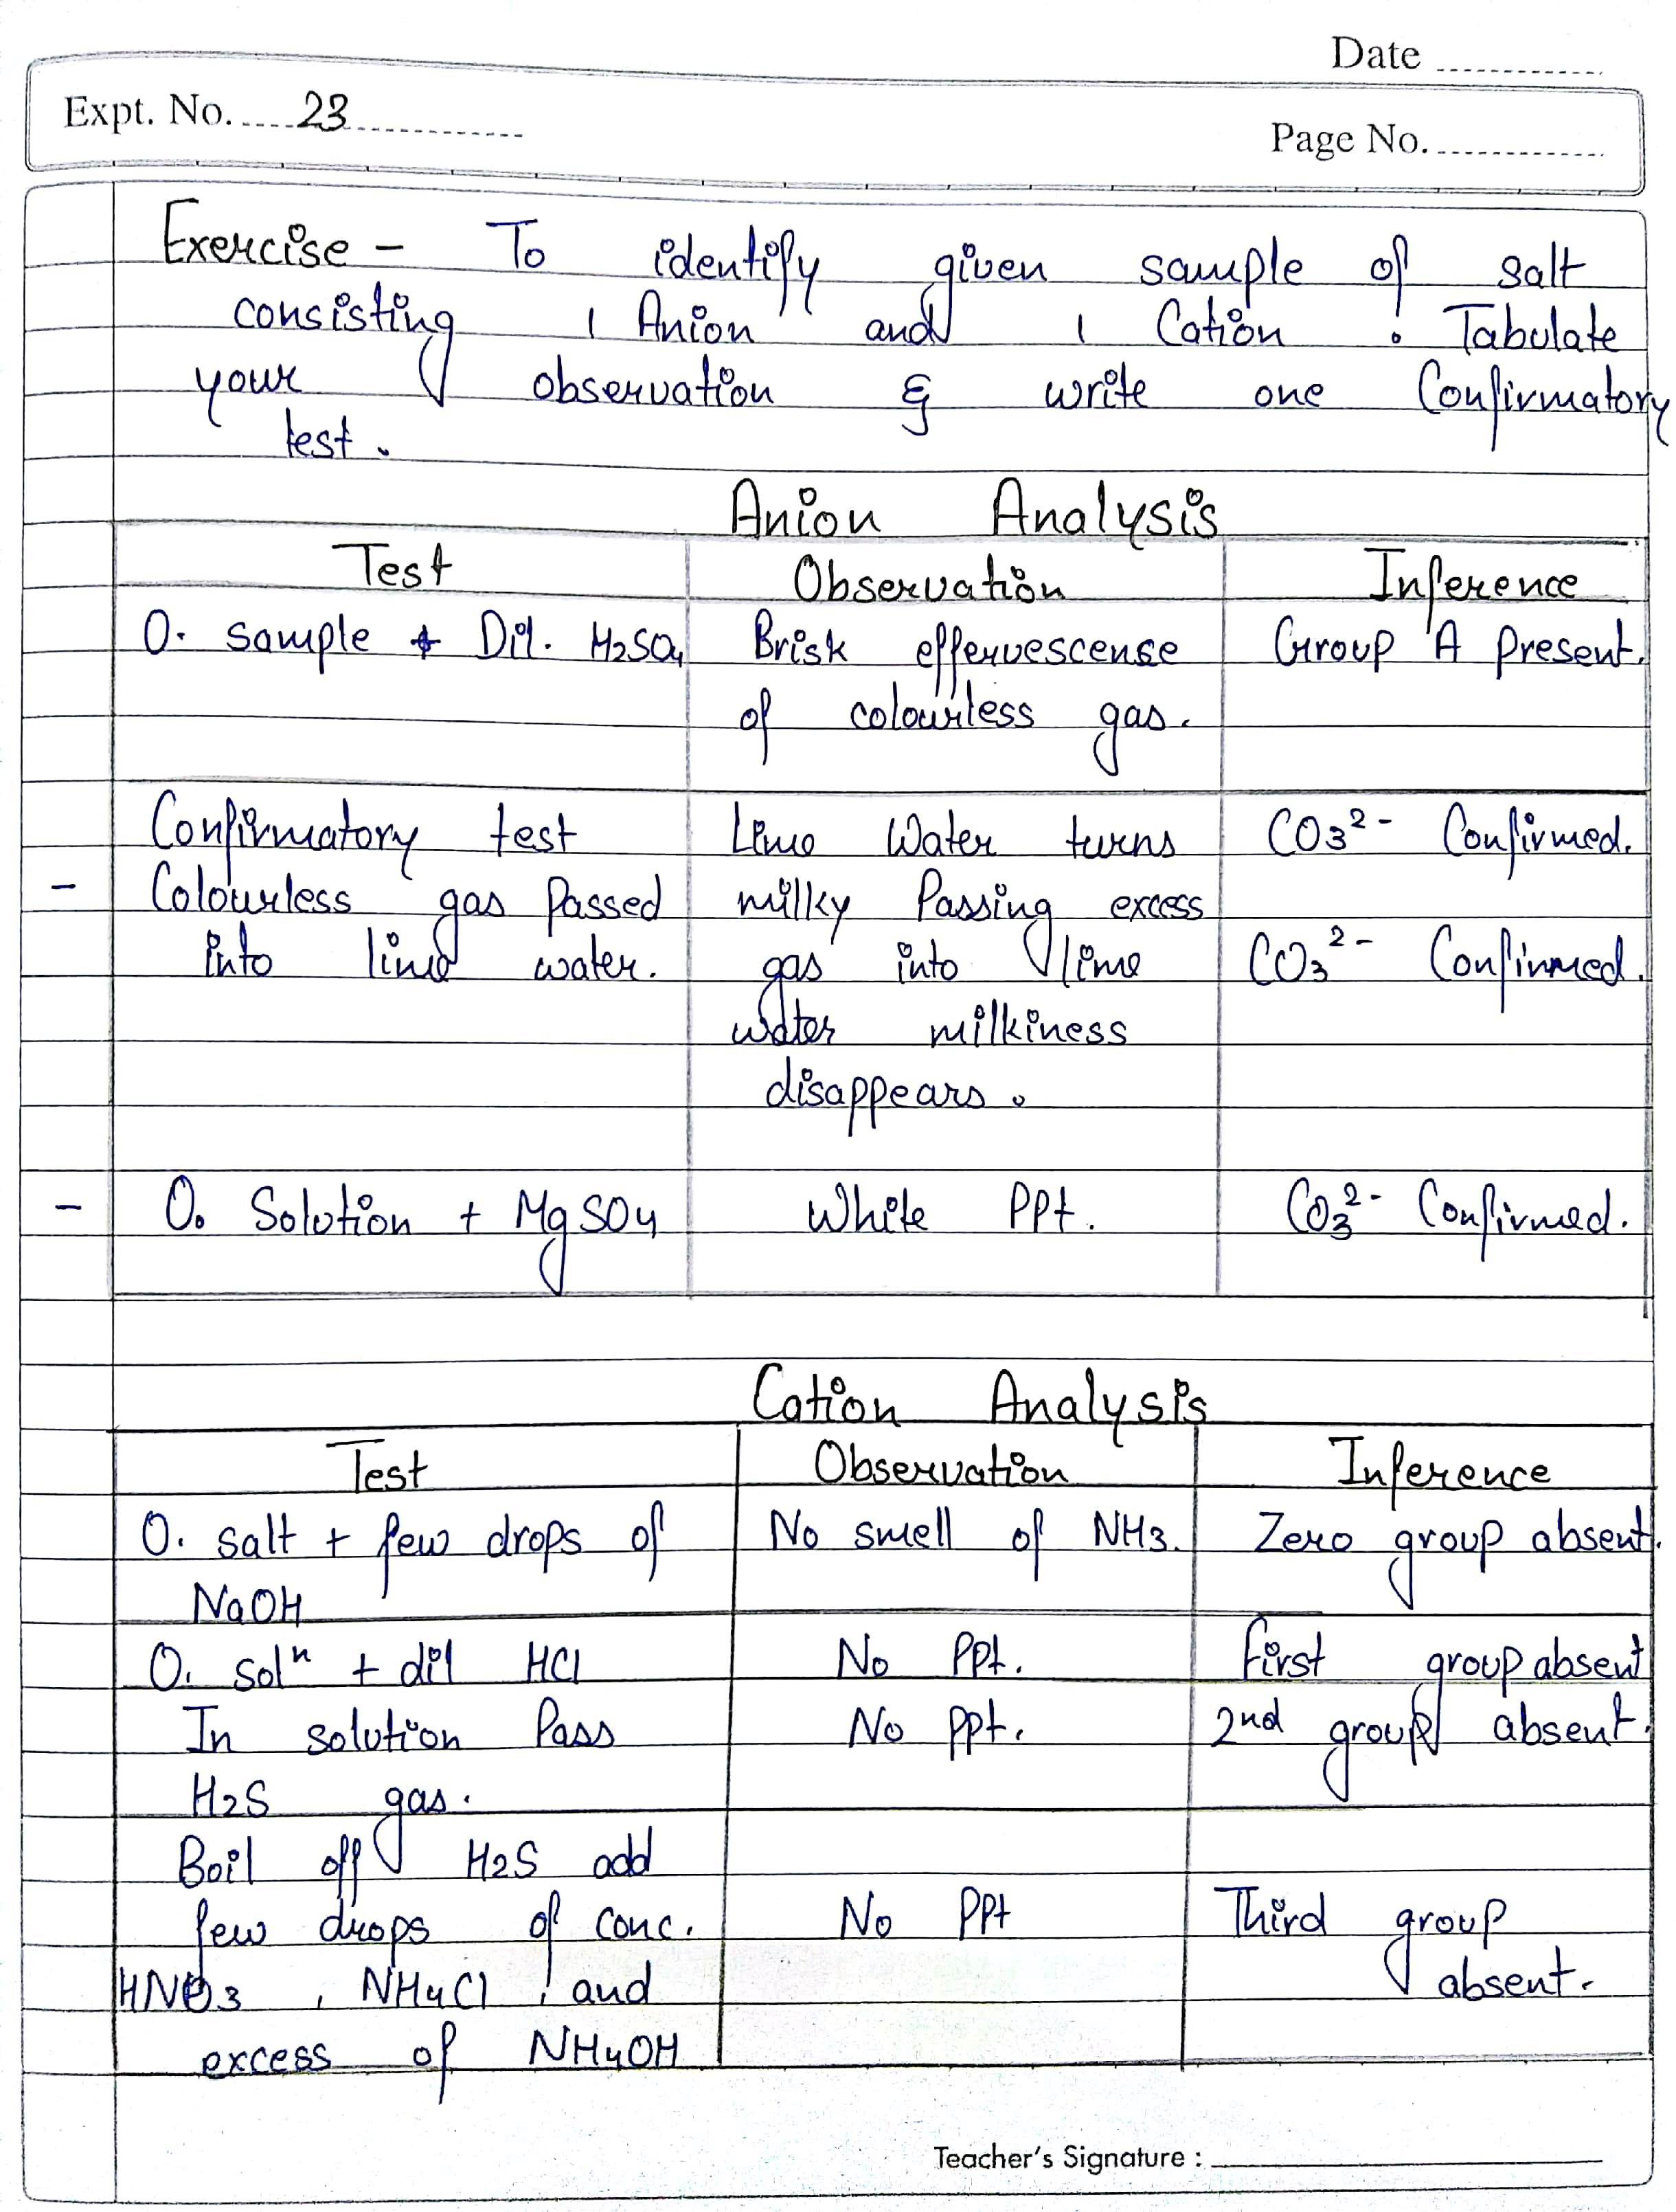 Date
Expt. No. 23
Page No.
Exercise - To identify given sample of salt
consisting 1 Anion and 1 Cation. Tabulate
your observation & write one Confirmatory
test.
Anion Analysis
Test Observation Inference
O. sample + Dil. H2SO4 Brisk effervescense Group 'A present.
of colourless gas.
Confirmatory test Lime Water turns CO3²⁻ Confirmed.
- Colourless gas Passed milky Passing excess
into lime water. gas into lime CO3²⁻ Confirmed.
water milkiness
disappears.
- O. Solution + MgSO4 White PPt. CO3²⁻ Confirmed.
Cation Analysis
Test Observation Inference
O. salt + few drops of No smell of NH3. Zero group absent.
NaOH
O. solⁿ + dil HCl No PPt. first group absent
In solution Pass No ppt. 2nd group absent.
H2S gas.
Boil off H2S add
few drops of conc. No PPt Third group
HNO3, NH4Cl, and absent.
excess of NH4OH
Teacher's Signature :